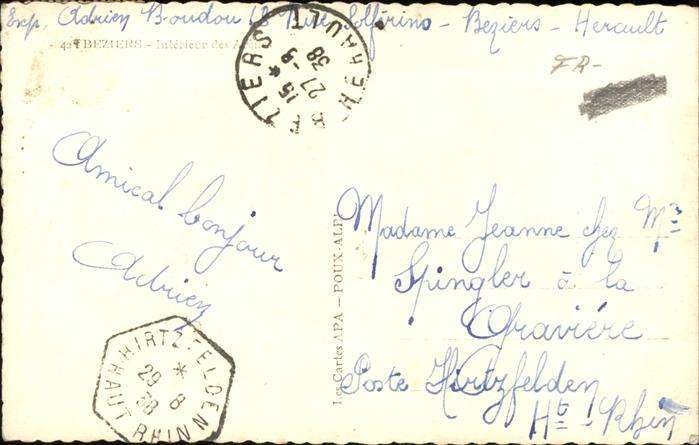 Exp. Adrien Boudou 68 Rue Solférino - Beziers - Herault
42 BEZIERS - Intérieur des
BEZIERS HERAULT
15 *
27 - 8
38
FR-
Amical bonjour
Adrien
Les Cartes APA - POUX-ALBI
Madame Jeanne chez Mr
Spingler à la
Gravière
Poste Hirtzfelden
Ht - Rhin
HIRTZFELDEN
*
29 8
38
HAUT RHIN